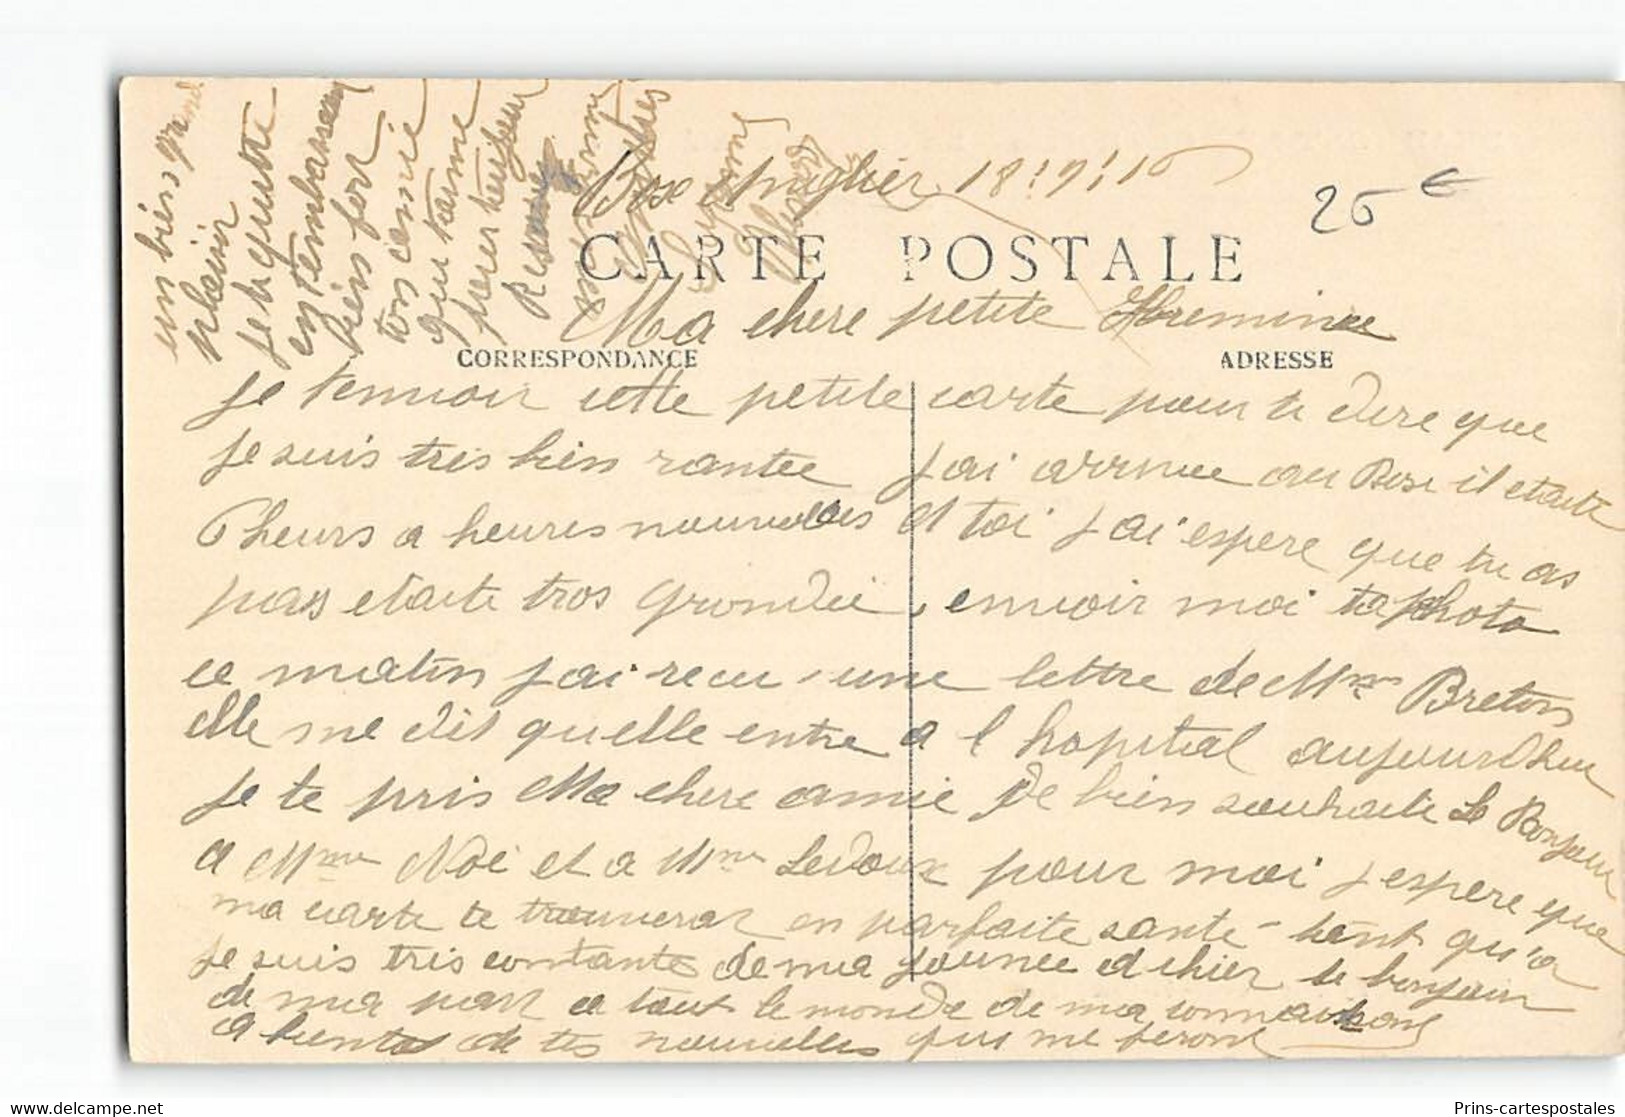 18!9!16
25 €
CARTE POSTALE
Ma chere petite
CORRESPONDANCE
ADRESSE
je tennvoir cette petite carte pour te dire que
je suis tris bien rantee j'ai arrivee au Bose il etaite
7 heurs a heures nouvelles et toi j ai espere que tu as
pas etaite tros grondée, envoir moi ta photo
ce matin j'ai recu une lettre de Mme Breton
elle me dit quelle entre a l hopital aujourdhui
je te pris Ma chere amie de bien souhaite le Bonjour
a Mme Noé et a Mme Ledoux pour moi j espere que
ma carte te trouveras en parfaite sante tent qu'a
je suis tris contante de ma journee d hier le bonjour
de ma part a tout le monde de ma connaissans
a bientos de tes nouvelles qui me feront
un bien grand
plaisir
je te quitte
en tembrassan
bien fort
ton amie
qui taime
pour toujour
Prins-cartespostales
delcampe.net